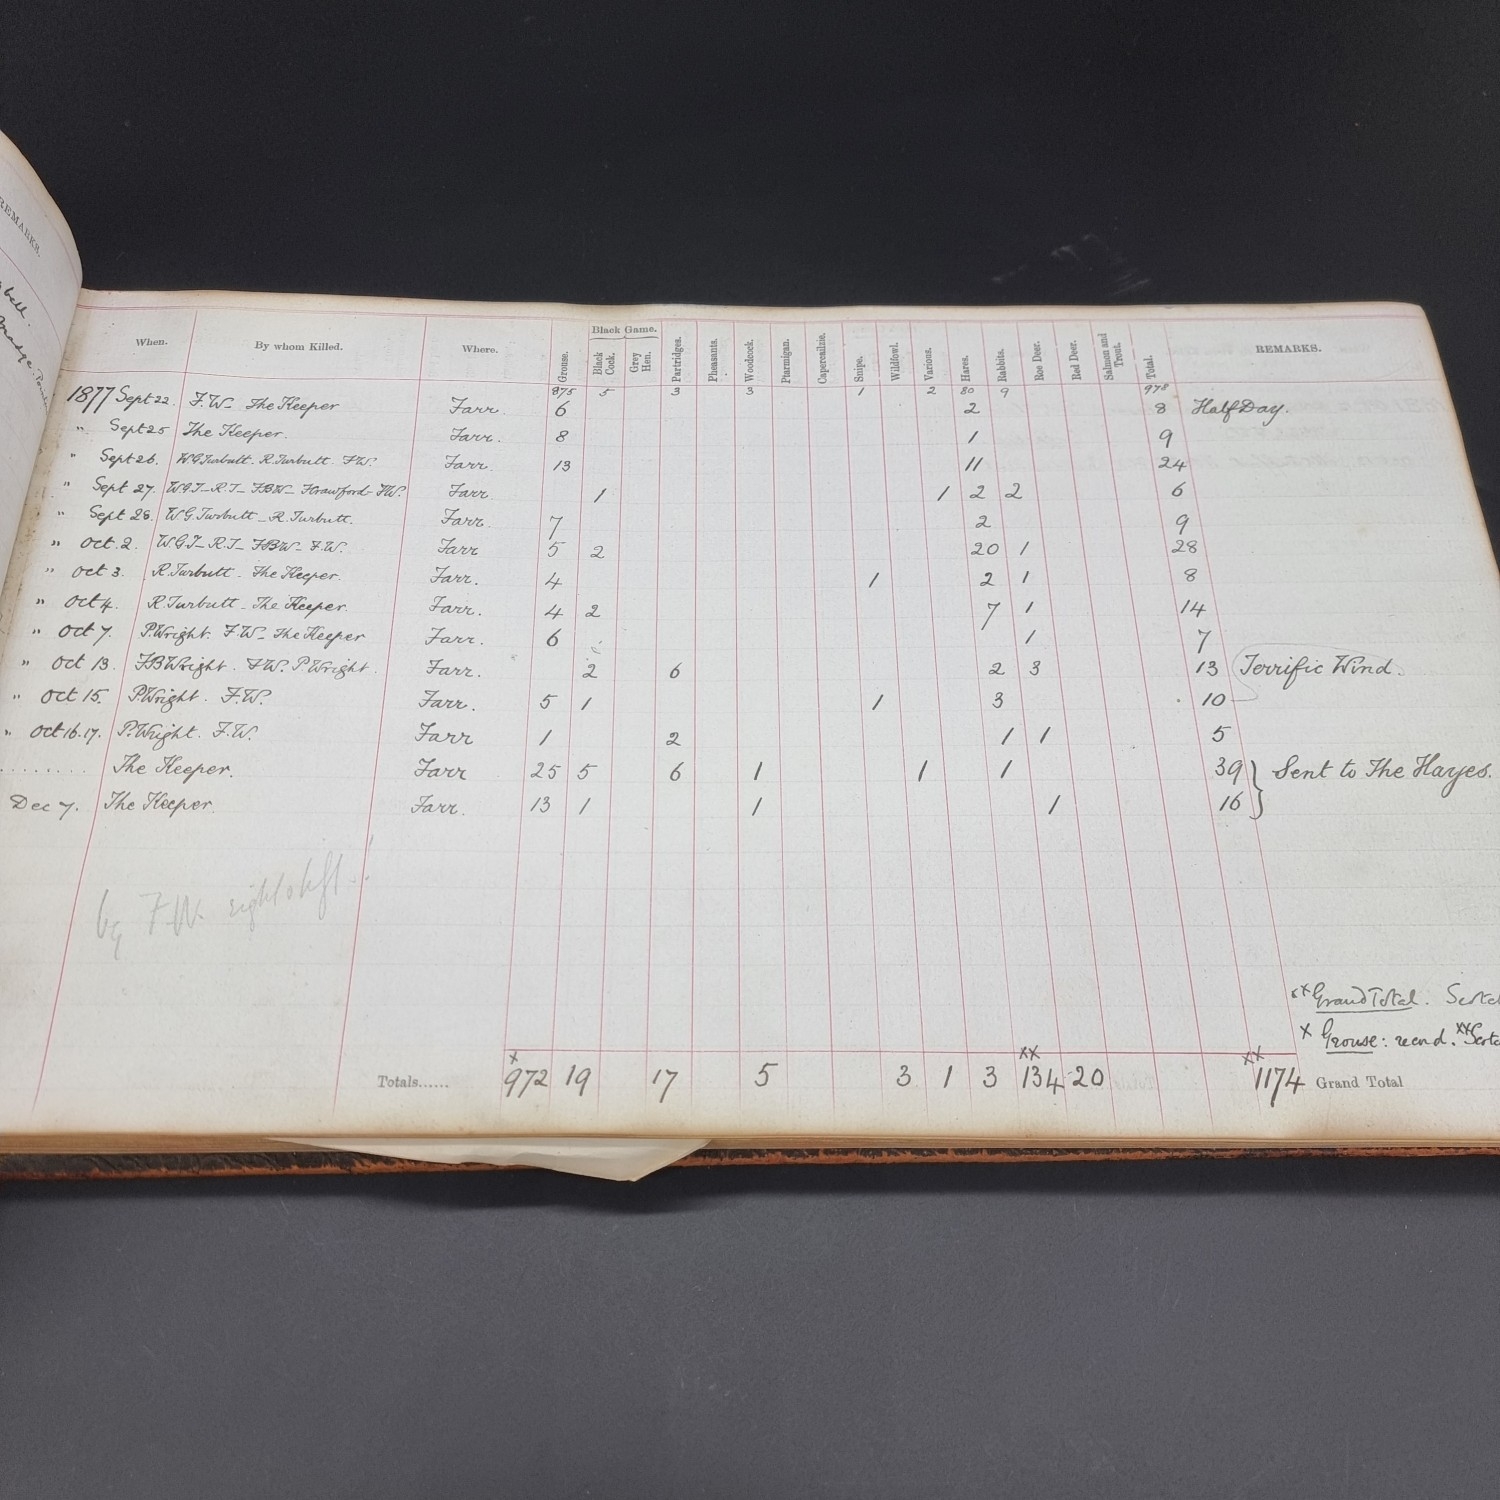 REMARKS.
bell.
When. By whom Killed. Where. Grouse. Black Game. Black Cock. Grey Hen. Partridges. Pheasants. Woodcock. Ptarmigan. Capercailzie. Snipe. Wildfowl. Various. Hares. Rabbits. Roe Deer. Red Deer. Salmon and Trout. Total. REMARKS.
875 5 3 3 1 2 80 9 978
1877 Sept 22. F.W. The Keeper Farr. 6 2 8 Half Day.
" Sept 25 The Keeper. Farr. 8 1 9
" Sept 26. W.G.Turbutt. R.Turbutt. F.W. Farr. 13 11 24
" Sept 27. W.G.T_ R.T_ FBW_ HCrawford_ F.W. Farr. 1 1 2 2 6
" Sept 28. W.G.Turbutt _ R.Turbutt. Farr. 7 2 9
" Oct. 2. W.G.T_ R.T_ FBW_ F.W. Farr 5 2 20 1 28
" Oct 3. R.Turbutt _ The Keeper. Farr. 4 1 2 1 8
" Oct 4. R.Turbutt _ The Keeper. Farr. 4 2 7 1 14
" Oct 7. P.Wright. F.W_ The Keeper Farr. 6 1 7
" Oct 13. FBWright. F.W. P.Wright. Farr. 2 6 2 3 13 Terrific Wind.
" Oct 15. P.Wright. F.W. Farr. 5 1 1 3 10
" Oct 16.17. P.Wright. F.W. Farr 1 2 1 1 5
........ The Keeper. Farr 25 5 6 1 1 1 39 } Sent to The Hayes.
Dec 7. The Keeper. Farr. 13 1 1 1 16
by F.W.
xx Grand Total.
x Grouse: xx
Totals...... x 972 19 17 5 3 1 3 xx 134 20 xx 1174 Grand Total